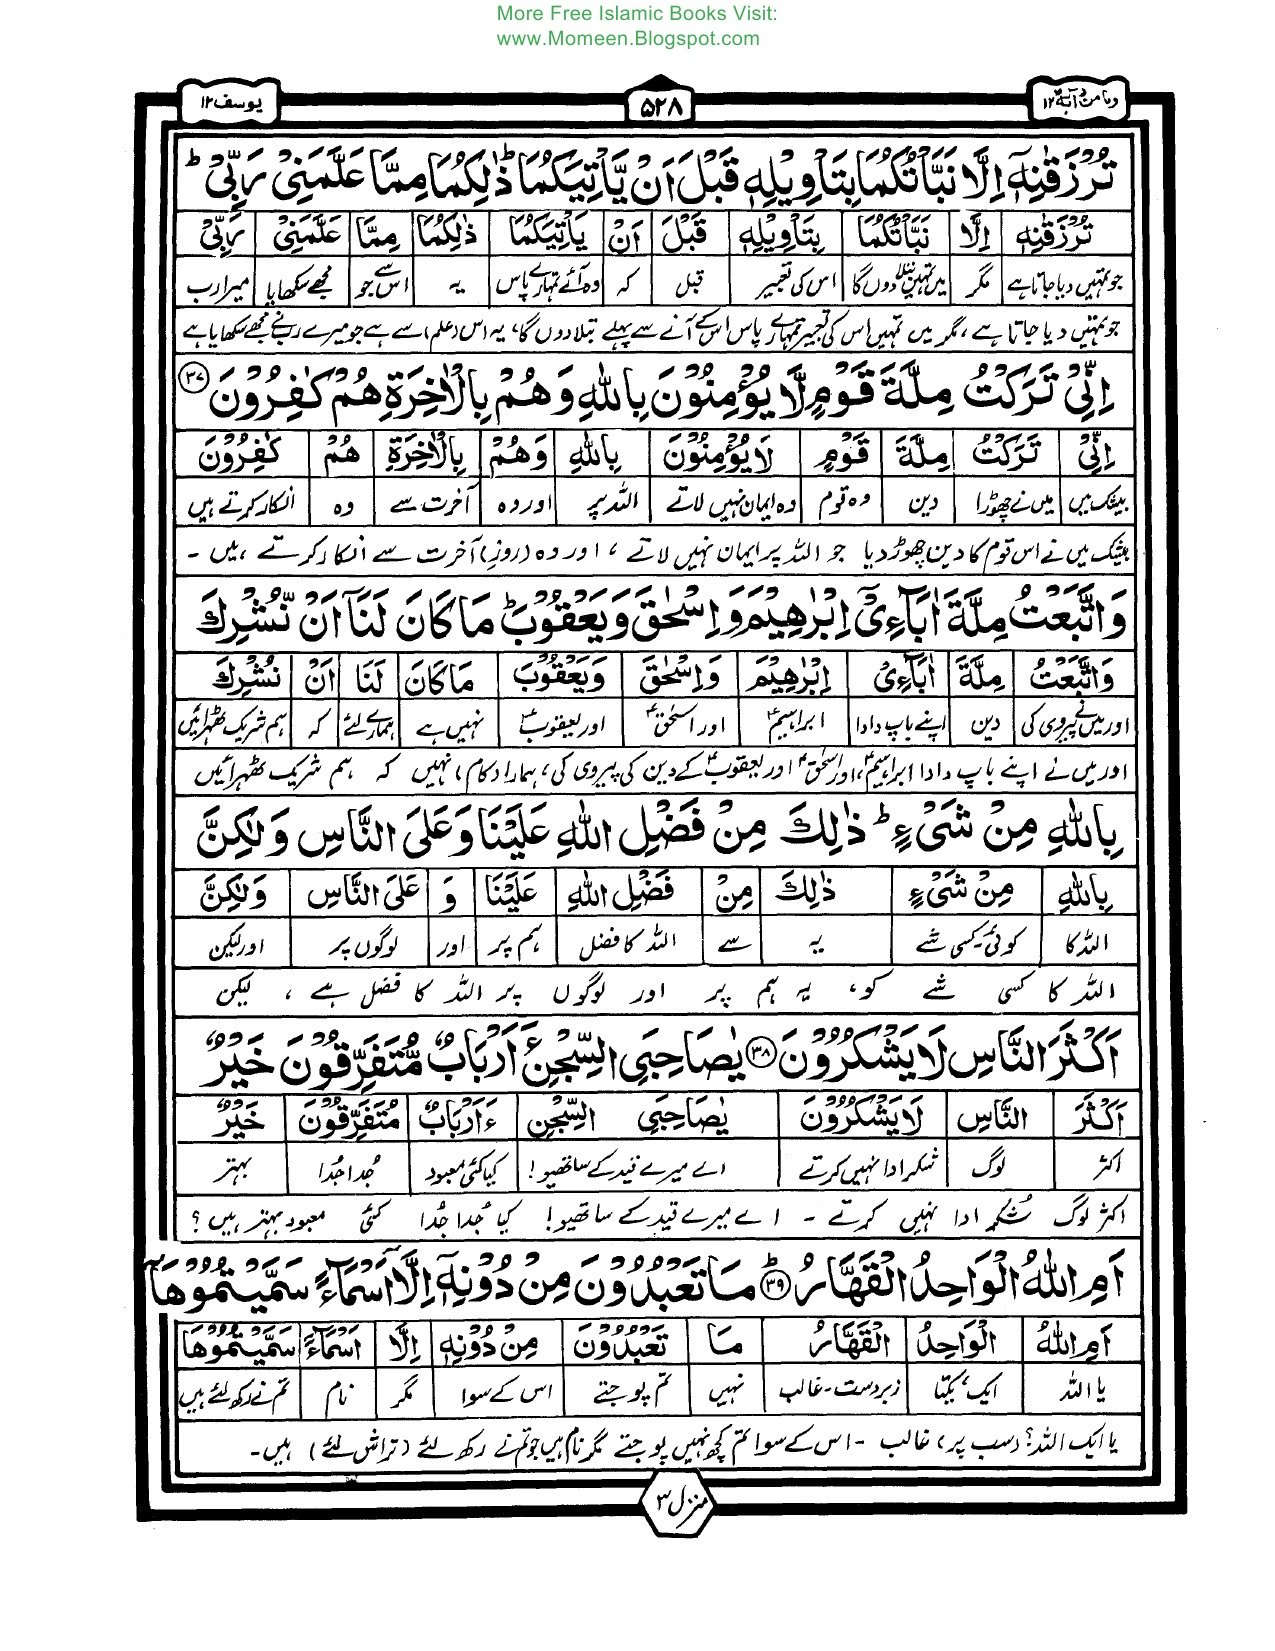 More Free Islamic Books Visit:
www.Momeen.Blogspot.com
یوسف ۱۲
۵۲۸
وما من دآبة ۱۲
تُرْزَقٰنِهٖۤ اِلَّا نَبَّاْتُكُمَا بِتَاْوِیْلِهٖ قَبْلَ اَنْ یَّاْتِیَكُمَا ؕ ذٰلِكُمَا مِمَّا عَلَّمَنِیْ رَبِّیْ ؕ
تُرْزَقٰنِهٖۤ اِلَّا نَبَّاْتُكُمَا بِتَاْوِیْلِهٖ قَبْلَ اَنْ یَاْتِیَكُمَا ذٰلِكُمَا مِمَّا عَلَّمَنِیْ رَبِّیْ
جو تمہیں دیا جاتا ہے مگر میں تمہیں بتلا دوں گا اس کی تعبیر قبل کہ وہ آئے تمہارے پاس یہ اس سے جو مجھے سکھایا میرا رب
جو تمہیں دیا جاتا ہے، مگر میں تمہیں اس کی تعبیر تمہارے پاس اس کے آنے سے پہلے بتلا دوں گا، یہ اس (علم) سے ہے جو میرے رب نے مجھے سکھایا ہے
اِنِّیْ تَرَكْتُ مِلَّةَ قَوْمٍ لَّا یُؤْمِنُوْنَ بِاللّٰهِ وَ هُمْ بِالْاٰخِرَةِ هُمْ كٰفِرُوْنَ ۳۷
اِنِّیْ تَرَكْتُ مِلَّةَ قَوْمٍ لَا یُؤْمِنُوْنَ بِاللّٰهِ وَهُمْ بِالْاٰخِرَةِ هُمْ كٰفِرُوْنَ
بیشک میں میں نے چھوڑا دین وہ قوم وہ ایمان نہیں لاتے اللہ پر اور وہ آخرت سے وہ انکار کرتے ہیں
بیشک میں نے اس قوم کا دین چھوڑ دیا جو اللہ پر ایمان نہیں لاتے، اور وہ (روزِ) آخرت سے انکار کرتے ہیں۔
وَاتَّبَعْتُ مِلَّةَ اٰبَآءِیْۤ اِبْرٰهِیْمَ وَ اِسْحٰقَ وَ یَعْقُوْبَ ؕ مَا كَانَ لَنَاۤ اَنْ نُّشْرِكَ
وَاتَّبَعْتُ مِلَّةَ اٰبَآءِیْ اِبْرٰهِیْمَ وَاِسْحٰقَ وَیَعْقُوْبَ مَا كَانَ لَنَا اَنْ نُشْرِكَ
اور میں نے پیروی کی دین اپنے باپ دادا ابراہیمؑ اور اسحٰقؑ اور یعقوبؑ نہیں ہے ہمارے لئے کہ ہم شریک ٹھہرائیں
اور میں نے اپنے باپ دادا ابراہیمؑ، اور اسحٰقؑ اور یعقوبؑ کے دین کی پیروی کی، ہمارا (کام) نہیں کہ ہم شریک ٹھہرائیں
بِاللّٰهِ مِنْ شَیْءٍ ؕ ذٰلِكَ مِنْ فَضْلِ اللّٰهِ عَلَیْنَا وَ عَلَی النَّاسِ وَ لٰكِنَّ
بِاللّٰهِ مِنْ شَیْءٍ ذٰلِكَ مِنْ فَضْلِ اللّٰهِ عَلَیْنَا وَ عَلَی النَّاسِ وَلٰكِنَّ
اللہ کا کوئی۔کسی شے یہ سے اللہ کا فضل ہم پر اور لوگوں پر اور لیکن
اللہ کا کسی شے کو، یہ ہم پر اور لوگوں پر اللہ کا فضل ہے، لیکن
اَكْثَرَ النَّاسِ لَا یَشْكُرُوْنَ ۳۸ یٰصَاحِبَیِ السِّجْنِ ءَاَرْبَابٌ مُّتَفَرِّقُوْنَ خَیْرٌ
اَكْثَرَ النَّاسِ لَا یَشْكُرُوْنَ یٰصَاحِبَیِ السِّجْنِ ءَاَرْبَابٌ مُتَفَرِّقُوْنَ خَیْرٌ
اکثر لوگ شکر ادا نہیں کرتے اے میرے قید کے ساتھیو! کیا کئی معبود جُدا جُدا بہتر
اکثر لوگ شکر ادا نہیں کرتے۔ اے میرے قید کے ساتھیو! کیا جُدا جُدا کئی معبود بہتر ہیں؟
اَمِ اللّٰهُ الْوَاحِدُ الْقَهَّارُ ؕ ۳۹ مَا تَعْبُدُوْنَ مِنْ دُوْنِهٖۤ اِلَّاۤ اَسْمَآءً سَمَّیْتُمُوْهَاۤ
اَمِ اللّٰهُ الْوَاحِدُ الْقَهَّارُ مَا تَعْبُدُوْنَ مِنْ دُوْنِهٖۤ اِلَّا اَسْمَآءً سَمَّیْتُمُوْهَا
یا اللہ ایک، یکتا زبردست۔غالب نہیں تم پوجتے اس کے سوا مگر نام تم نے رکھ لئے ہیں
یا ایک اللہ؟ (سب پر) غالب ۔ اس کے سوا تم کچھ نہیں پوجتے مگر نام ہیں جو تم نے رکھ لئے (تراش لئے) ہیں۔
منزل ۳